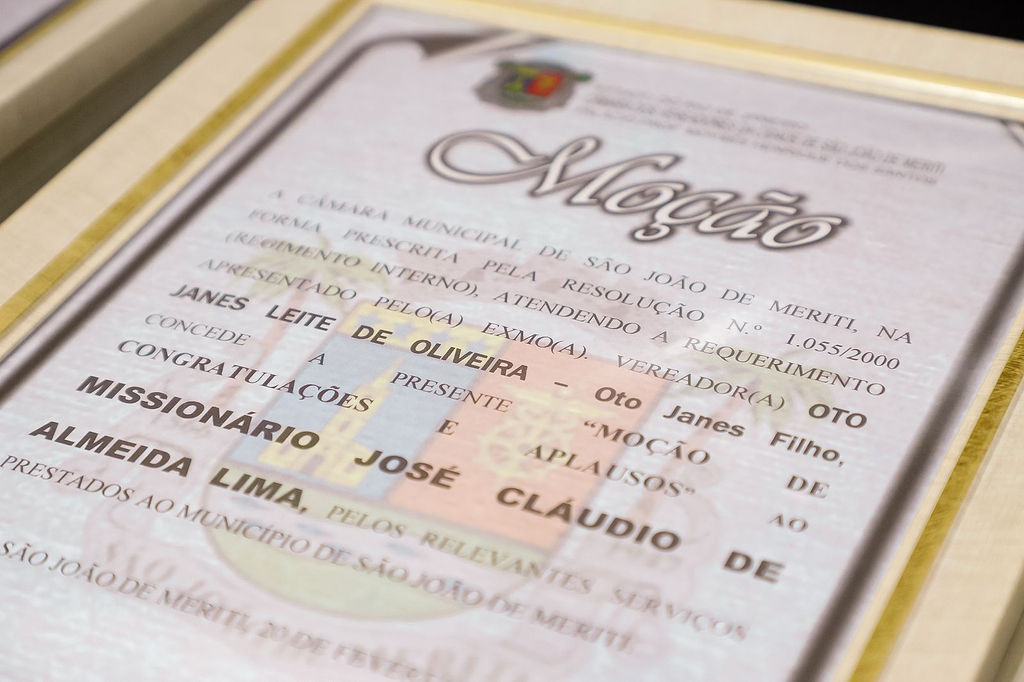 Moção
A CÂMARA MUNICIPAL DE SÃO JOÃO DE MERITI, NA
FORMA PRESCRITA PELA RESOLUÇÃO N.º 1.055/2000
(REGIMENTO INTERNO), ATENDENDO A REQUERIMENTO
APRESENTADO PELO(A) EXMO(A). VEREADOR(A) OTO
JANES LEITE DE OLIVEIRA – Oto Janes Filho,
CONCEDE A PRESENTE “MOÇÃO DE
CONGRATULAÇÕES E APLAUSOS” AO
MISSIONÁRIO JOSÉ CLÁUDIO DE
ALMEIDA LIMA, PELOS RELEVANTES SERVIÇOS
PRESTADOS AO MUNICÍPIO DE SÃO JOÃO DE MERITI.
SÃO JOÃO DE MERITI, 20 DE